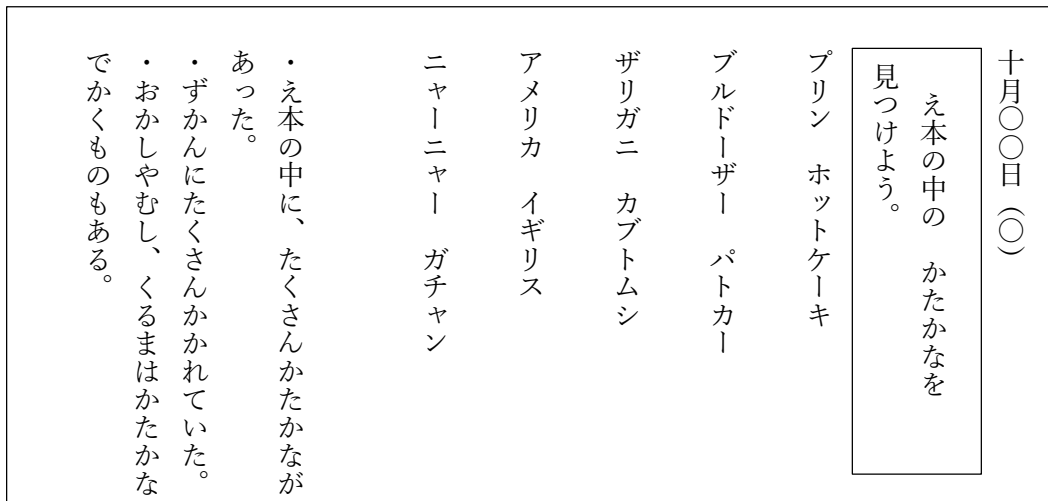 十月〇〇日（〇）
え本の中の　かたかなを
見つけよう。
プリン　ホットケーキ
ブルドーザー　パトカー
ザリガニ　カブトムシ
アメリカ　イギリス
ニャーニャー　ガチャン
・え本の中に、たくさんかたかなが
あった。
・ずかんにたくさんかかれていた。
・おかしやむし、くるまはかたかな
でかくものもある。